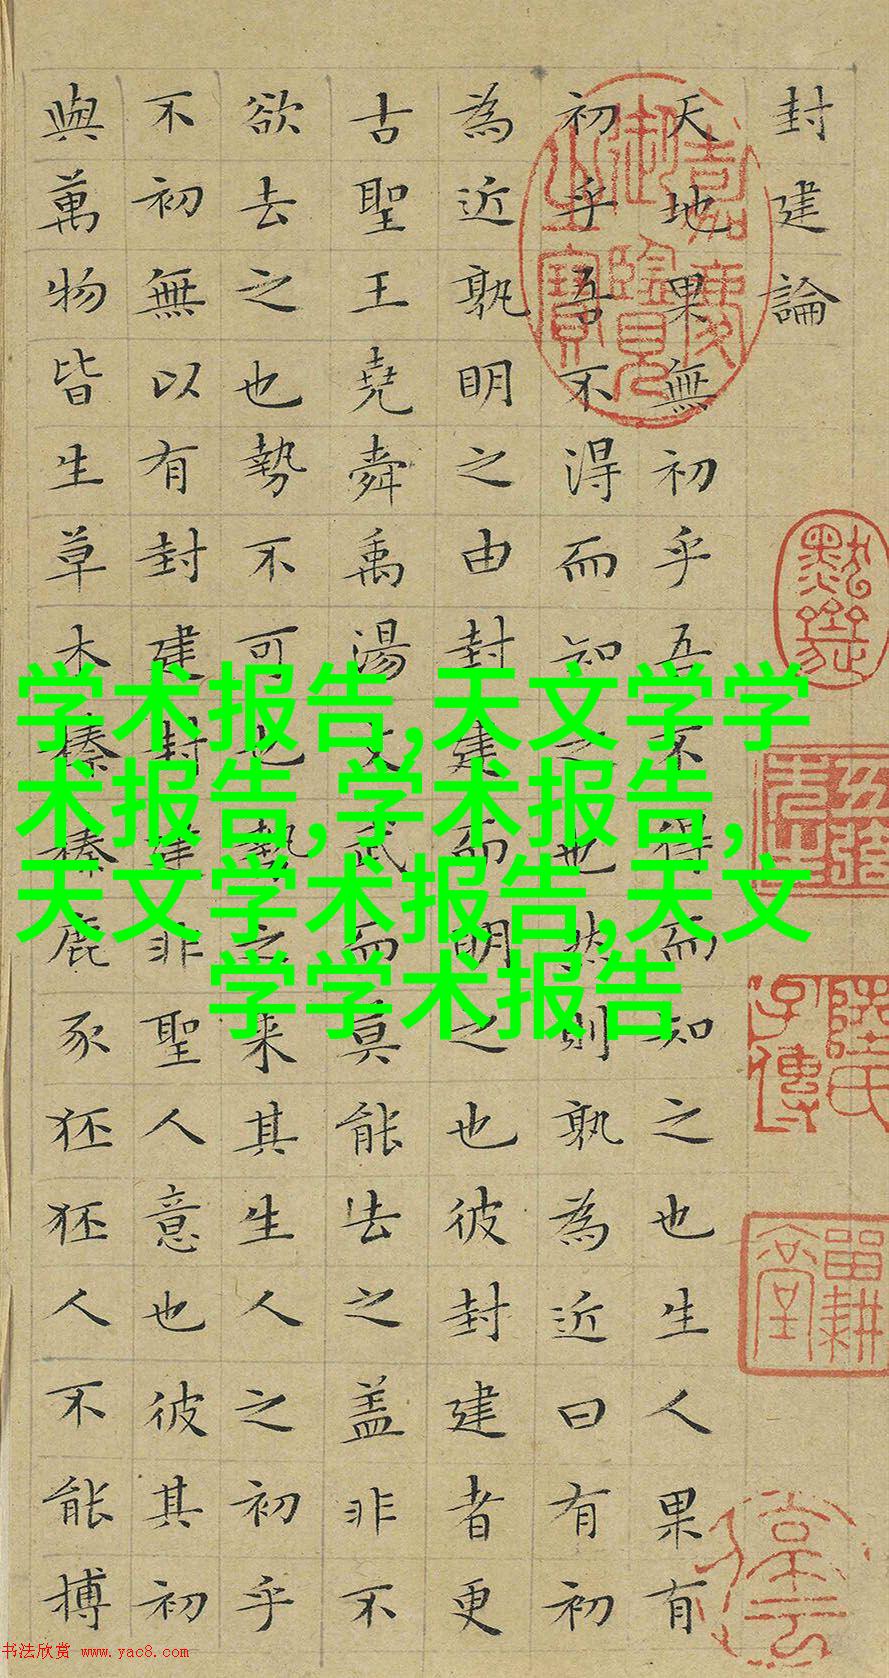 封建論
天地果無初乎吾不得而知之也生人果有
初乎吾不得而知之也然則孰為近曰有初
為近孰明之由封建而明之也彼封建者更
古聖王堯舜禹湯文武而莫能去之盖非不
欲去之也勢不可也勢之来其生人之初乎
不初無以有封建封建非聖人意也彼其初
與萬物皆生草木榛榛鹿豕狉狉人不能搏
嘉慶御覽之寶
留耕堂
学术报告,天文学学
术报告,学术报告,
天文学术报告,天文
学学术报告
书法欣赏 www.yac8.com